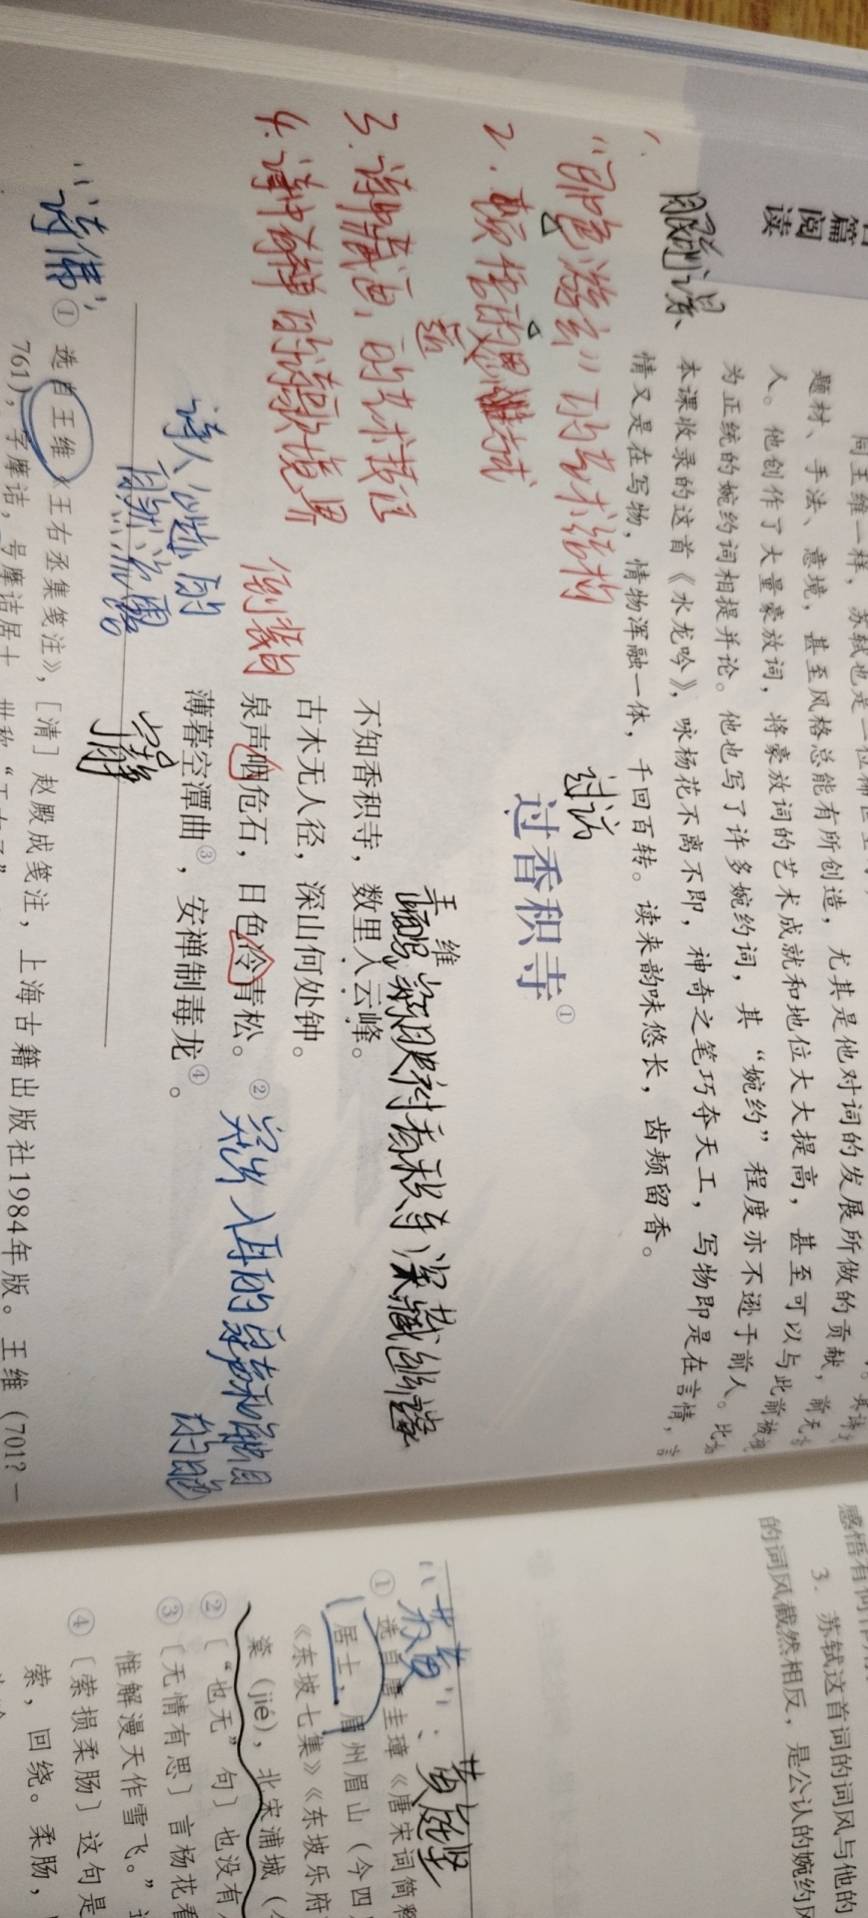 百篇阅读
同王维一样，苏轼也是一位
题材、手法、意境，甚至风格总能有所创造，尤其是他对词的发展所做的贡献，前无古
人。他创作了大量豪放词，将豪放词的艺术成就和地位大大提高，甚至可以与此前被视
为正统的婉约词相提并论。他也写了许多婉约词，其“婉约”程度亦不逊于前人。比如
本课收录的这首《水龙吟》，咏杨花不离不即，神奇之笔巧夺天工，写物即是在言情，言
情又是在写物，情物浑融一体，千回百转。读来韵味悠长，齿颊留香。
1.
的艺术结构
2.
3. 诗中藏画的艺术技法
4. 诗中有禅的诗歌境界
过访
过香积寺①
王维
衬香积寺深藏幽邃
不知香积寺，数里入云峰。
古木无人径，深山何处钟。
倒装句
泉声咽危石，日色冷青松。②
突出入耳的泉声和触目的日色
薄暮空潭曲③，安禅制毒龙④。
诗人心迹的
自然流露
宁静
“诗佛”
①选自王维《王右丞集笺注》，［清］赵殿成笺注，上海古籍出版社1984年版。王维（701？—
761），字摩诘，号摩诘居士，世称“王右丞”
感悟有何
3. 苏轼这首词的词风与他的
的词风截然相反，是公认的婉约风
“苏黄”：黄庭坚
①选自唐圭璋《唐宋词简释
居士，眉州眉山（今四
《东坡七集》《东坡乐府
楶（jié），北宋浦城（今
②〔“也无”句〕也没有人
③〔无情有思〕言杨花看
惟解漫天作雪飞。”
④〔萦损柔肠〕这句是
萦，回绕。柔肠，